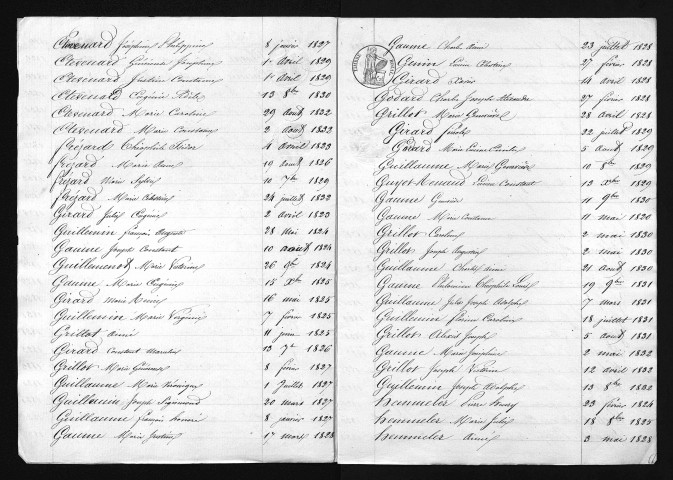 Etevenard Joséphine Philippine 8 janvier 1827
Etevenard Joséphine 1er Avril 1829
Etevenard Justin Constant 1er Avril 1829
Etevenard Eugénie Adèle 13 8bre 1830
Etevenard Marie Caroline 29 Août 1832
Etevenard Marie Constance 2 Août 1832
Fréjard Théophile Isidor 4 Avril 1823
Fréjard Marie Anne 19 Août 1826
Fréjard Marie 10 7bre 1829
Fréjard Marie Célestine 24 juillet 1832
Girard Julie Eugénie 2 Avril 1823
Guillaume François Auguste 28 Mai 1824
Gaume Joseph Constant 10 Août 1824
Guillemenot Marie Victorine 26 9bre 1824
Gaume Marie Eugénie 15 Xbre 1825
Girard Marie 16 mai 1825
Guillemin Marie Virginie 7 février 1825
Grillot Aimé 11 juin 1825
Girard Constant 13 7bre 1826
Grillot Marie Geneviève 8 février 1827
Guillaume Marie Véronique 1 Juillet 1827
Guillemin Joseph Sigismond 20 mars 1827
Guillaume François Honoré 8 janvier 1827
Gaume Marie Justine 17 mars 1828
Gaume Charles Aimé 23 juillet 1828
Genion Pierre Célestin 27 février 1828
Girard 14 Avril 1828
Godard Charles Joseph Alexandre 27 février 1828
Grillot Marie Geneviève 28 Avril 1828
Girard 22 juillet 1829
Godard Marie 5 Août 1829
Guillaume Marie Geneviève 10 8bre 1829
Guyot-Renaud Pierre Constant 13 Xbre 1829
Gaume 11 9bre 1830
Gaume Marie Constance 11 mai 1820
Grillot Caroline 2 mai 1830
Grillot Joseph Augustin 2 mai 1830
Guillaume Charles Aimé 21 Août 1830
Gaume Théophile Louis 19 9bre 1831
Guillaume Jules Joseph Adolphe 7 mars 1831
Guillemin Caroline 18 juillet 1831
Grillot Alexis Joseph 5 Août 1831
Gaume Marie Joséphine 2 mai 1832
Grillot Joseph 12 Avril 1832
Guillemin Joseph Adolphe 13 8bre 1832
Hemmeler Pierre 23 février 1824
Hemmeler Marie Julie 18 8bre 1825
Hemmeler Aimé 3 mai 1828